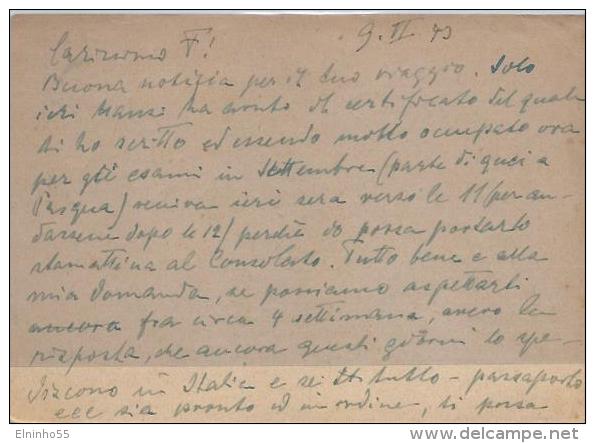 Carissimo F!
9. II 43
Buona notizia per il tuo viaggio. Solo
ieri Hansi ha avuto il certificato del quale
ti ho scritto ed essendo molto occupato ora
per gli esami in Settembre (parte di quei a
Pasqua) veniva ieri sera verso le 11 (per an-
darsene dopo le 12) perchè io possa portarlo
stamattina al Consolato. Tutto bene e alla
mia domanda, se possiamo aspettarti
ancora fra circa 4 settimane, avevo la
risposta, che ancora questi giorni lo spe-
discono in Italia e se tutto - passaporto
ecc sia pronto ed in ordine, ti possa
Elninho55
www.delcampe.net